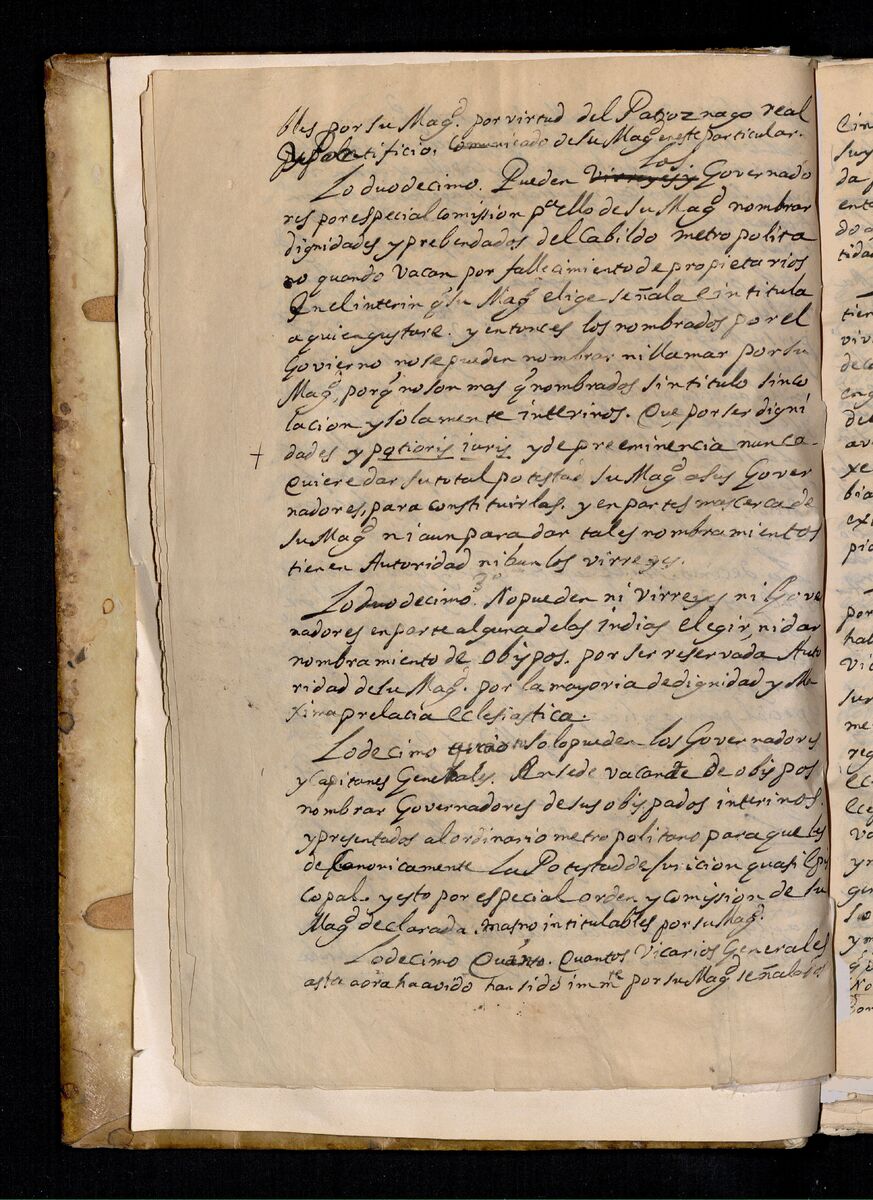 bles por su Magd. por virtud del Patroznago real
y Pontificio, Comunicado de su Magd en este particular.
Lo duodecimo. Pueden los Governado
res por especial comission pa ello de su Magd nombrar
dignidades y prebendados del Cabildo metropolita
no quando vacan por fallecimiento de propietarios
En el interin q su Magd elige señala e intitula
a quien gustare. y entonces los nombrados por el
Govierno no se pueden nombrar ni llamar por su
Magd, porq no son mas q nombrados sin titulo sin co
lacion y solamente interinos. Que por ser digni
dades y potioris iuris y de preeminencia nunca
quiere dar su total potestad su Magd a sus Gover
nadores, para constituirlas. y en partes mas cerca de
su Magd ni aun para dar tales nombramientos
tienen Autoridad ni aun los virreyes.
Lo duodecimo 3o. No pueden ni Virreyes ni Gove
nadores en parte alguna de las indias elegir, ni dar
nombramiento de obispos. por ser reservada Auto
ridad de su Magd. por la mayoria de dignidad y Ma
xima prelacia ecclesiastica.
Lo decimo solo pueden los Governadores
y Capitanes Generales. En sede vacante de obispos
nombrar Governadores de sus obispados interinos.
y presentados al ordinario metropolitano para que les
de Canonicamente la Potestad de juricion quasi Epis
copal. y esto por especial orden y comission de su
Magd declarada. mas no intitulables por su Magd.
Lo decimo Quinto. Quantos Vicarios Generales
asta aora ha avido han sido imte por su Magd señalados